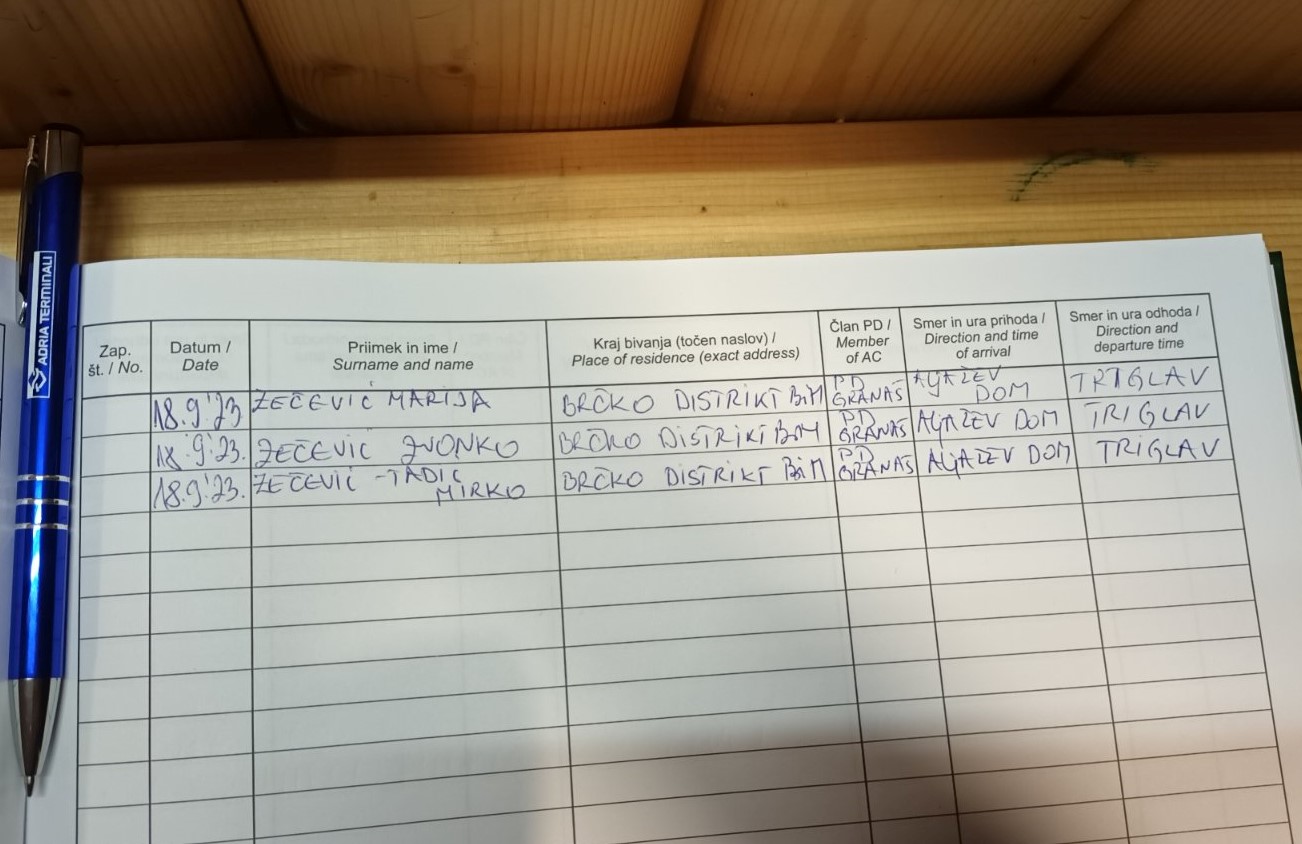 ADRIA TERMINALI
Zap. št. / No.
Datum / Date
Priimek in ime / Surname and name
Kraj bivanja (točen naslov) / Place of residence (exact address)
Član PD / Member of AC
Smer in ura prihoda / Direction and time of arrival
Smer in ura odhoda / Direction and departure time
18.9.'23 ZEČEVIĆ MARIJA BRČKO DISTRIKT BiH PD GRANAŠ ALJAŽEV DOM TRIGLAV
18.9.'23. ZEČEVIĆ ZVONKO BRČKO DISTRIKT BiH PD GRANAŠ ALJAŽEV DOM TRIGLAV
18.9.'23. ZEČEVIĆ - TADIĆ MIRKO BRČKO DISTRIKT BiH PD GRANAŠ ALJAŽEV DOM TRIGLAV